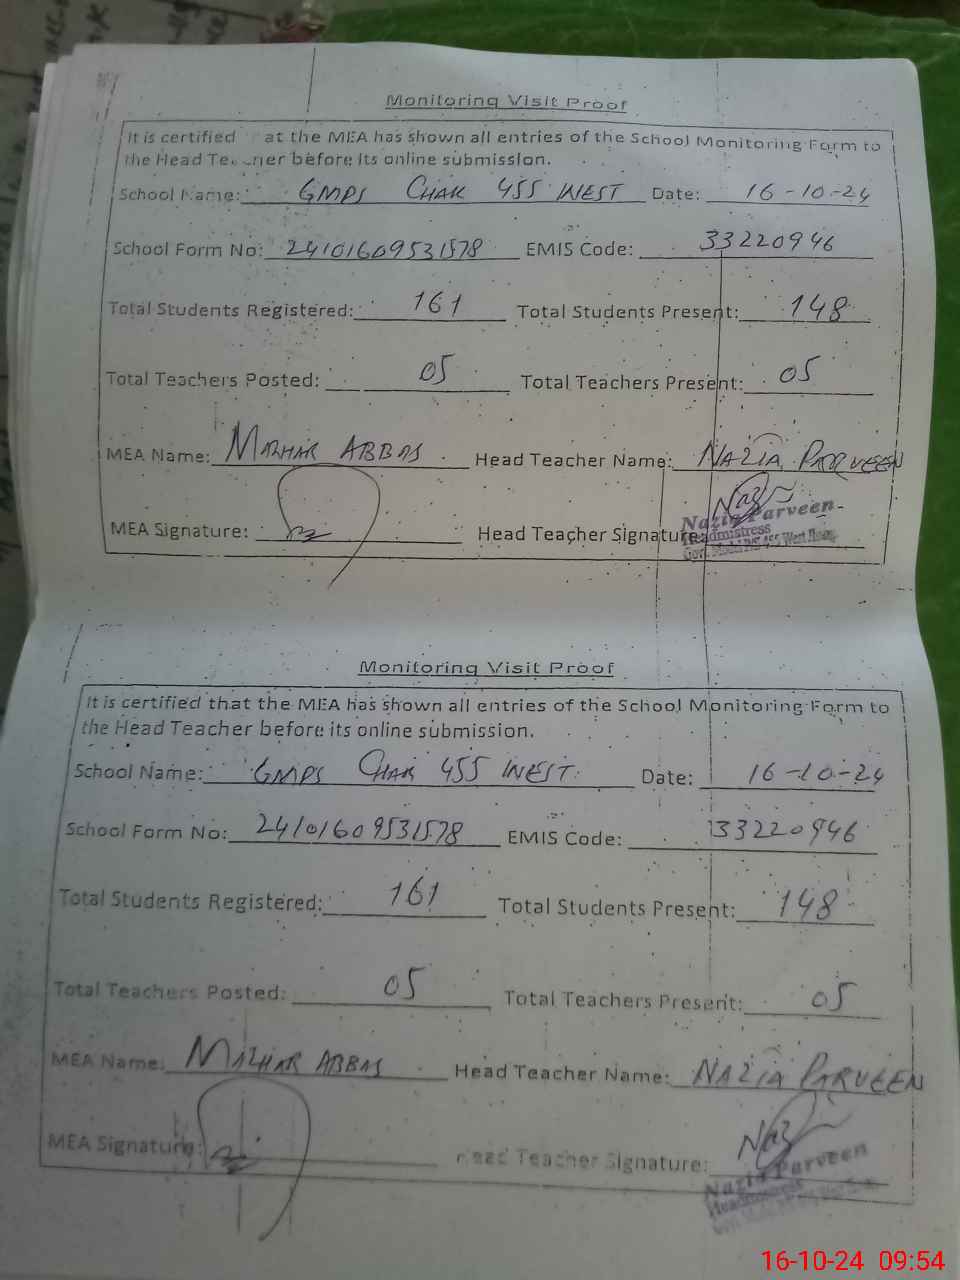 Monitoring Visit Proof
It is certified at the MEA has shown all entries of the School Monitoring Form to
the Head Teacher before its online submission.
School Name: GMPS CHAK 455 WEST Date: 16-10-24
School Form No: 24101609531578 EMIS Code: 33220946
Total Students Registered: 161 Total Students Present: 148
Total Teachers Posted: 05 Total Teachers Present: 05
MEA Name: MAZHAR ABBAS Head Teacher Name: NAZIA PARVEEN
MEA Signature: Head Teacher Signature: Naz
Nazia Parveen
Headmistress
Govt. 455 West
Monitoring Visit Proof
It is certified that the MEA has shown all entries of the School Monitoring Form to
the Head Teacher before its online submission.
School Name: GMPS CHAK 455 WEST Date: 16-10-24
School Form No: 24101609531578 EMIS Code: 33220946
Total Students Registered: 161 Total Students Present: 148
Total Teachers Posted: 05 Total Teachers Present: 05
MEA Name: MAZHAR ABBAS Head Teacher Name: NAZIA PARVEEN
MEA Signature: Head Teacher Signature: Naz
Nazia Parveen
Headmistress
16-10-24 09:54